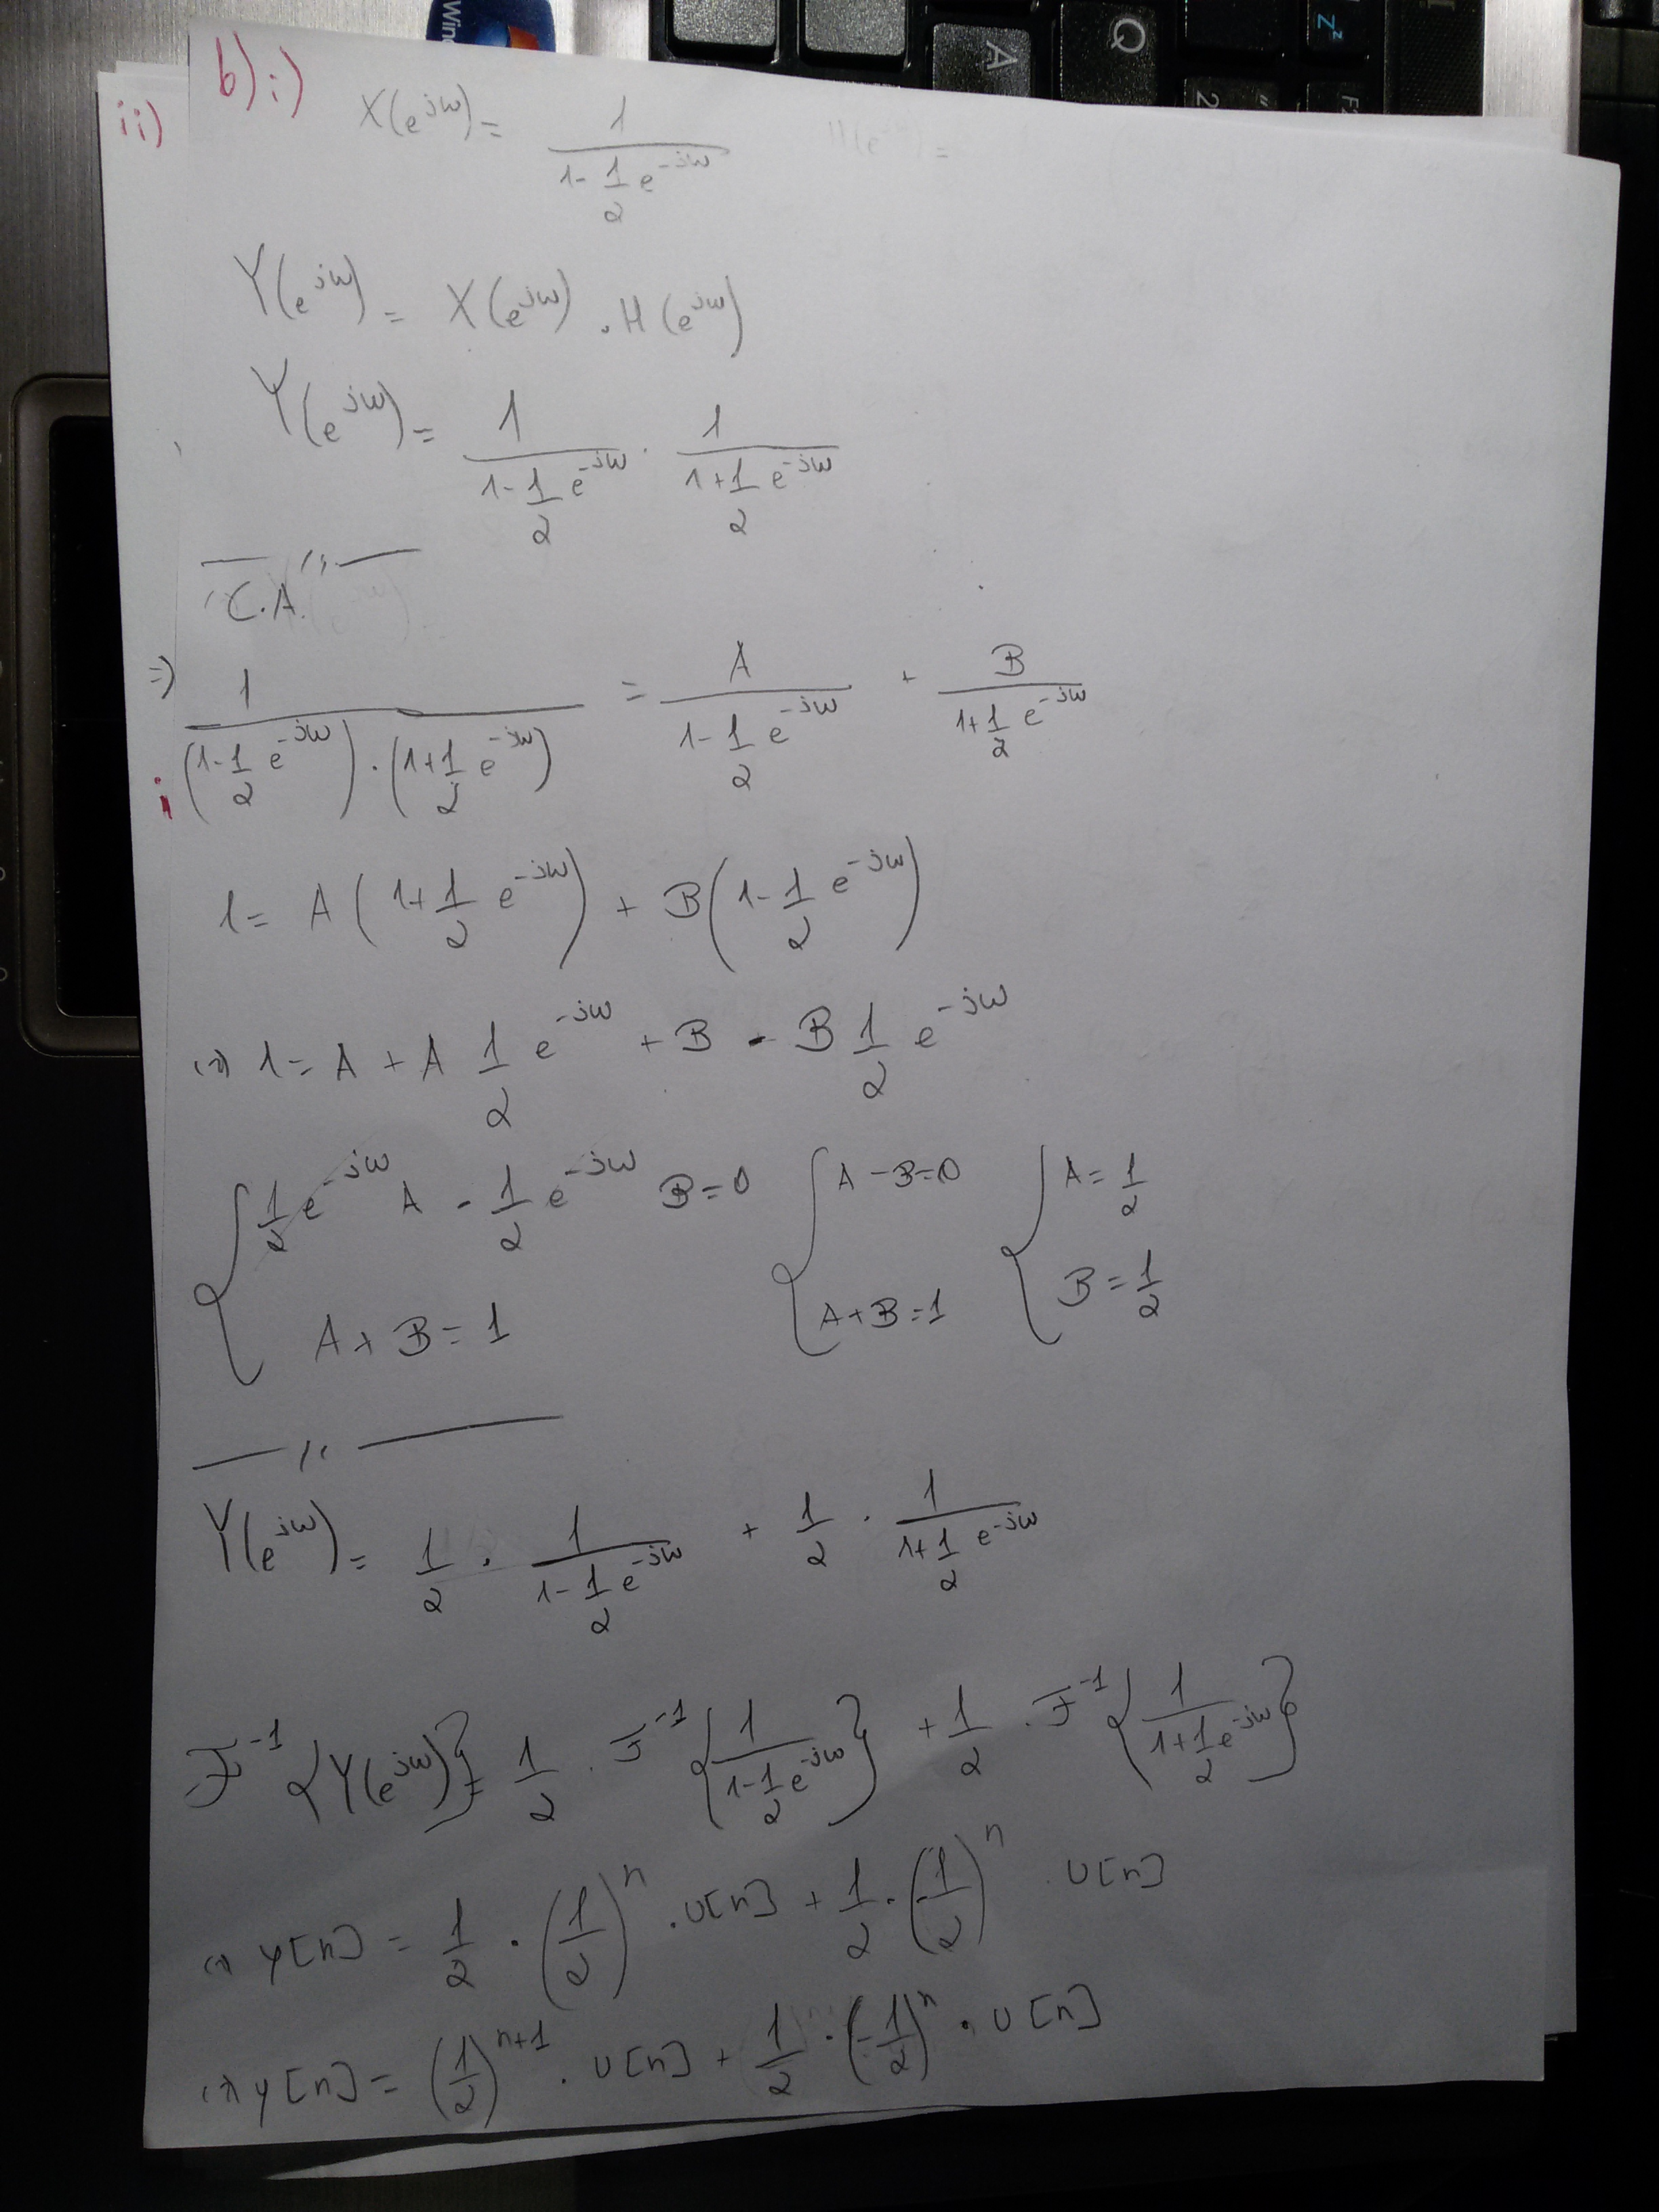 Wind
A
Q
Zz
2
"
F2
ii)
b) i)
X(e^{jω}) = 1 / (1 - 1/2 e^{-jω})
H(e^{jω}) =
Y(e^{jω}) = X(e^{jω}) . H(e^{jω})
Y(e^{jω}) = 1 / (1 - 1/2 e^{-jω}) . 1 / (1 + 1/2 e^{-jω})
C.A.
=) 1 / ((1 - 1/2 e^{-jω}) . (1 + 1/2 e^{-jω})) = A / (1 - 1/2 e^{-jω}) + B / (1 + 1/2 e^{-jω})
i
1 = A (1 + 1/2 e^{-jω}) + B (1 - 1/2 e^{-jω})
(=) 1 = A + A 1/2 e^{-jω} + B - B 1/2 e^{-jω}
{ 1/2 e^{-jω} A - 1/2 e^{-jω} B = 0 { A - B = 0 { A = 1/2
A + B = 1 A + B = 1 B = 1/2
Y(e^{jω}) = 1/2 . 1 / (1 - 1/2 e^{-jω}) + 1/2 . 1 / (1 + 1/2 e^{-jω})
F^{-1} {Y(e^{jω})} = 1/2 . F^{-1} {1 / (1 - 1/2 e^{-jω})} + 1/2 . F^{-1} {1 / (1 + 1/2 e^{-jω})}
(=) y[n] = 1/2 . (1/2)^n . U[n] + 1/2 . (-1/2)^n . U[n]
(=) y[n] = (1/2)^{n+1} . U[n] + 1/2 . (-1/2)^n . U[n]